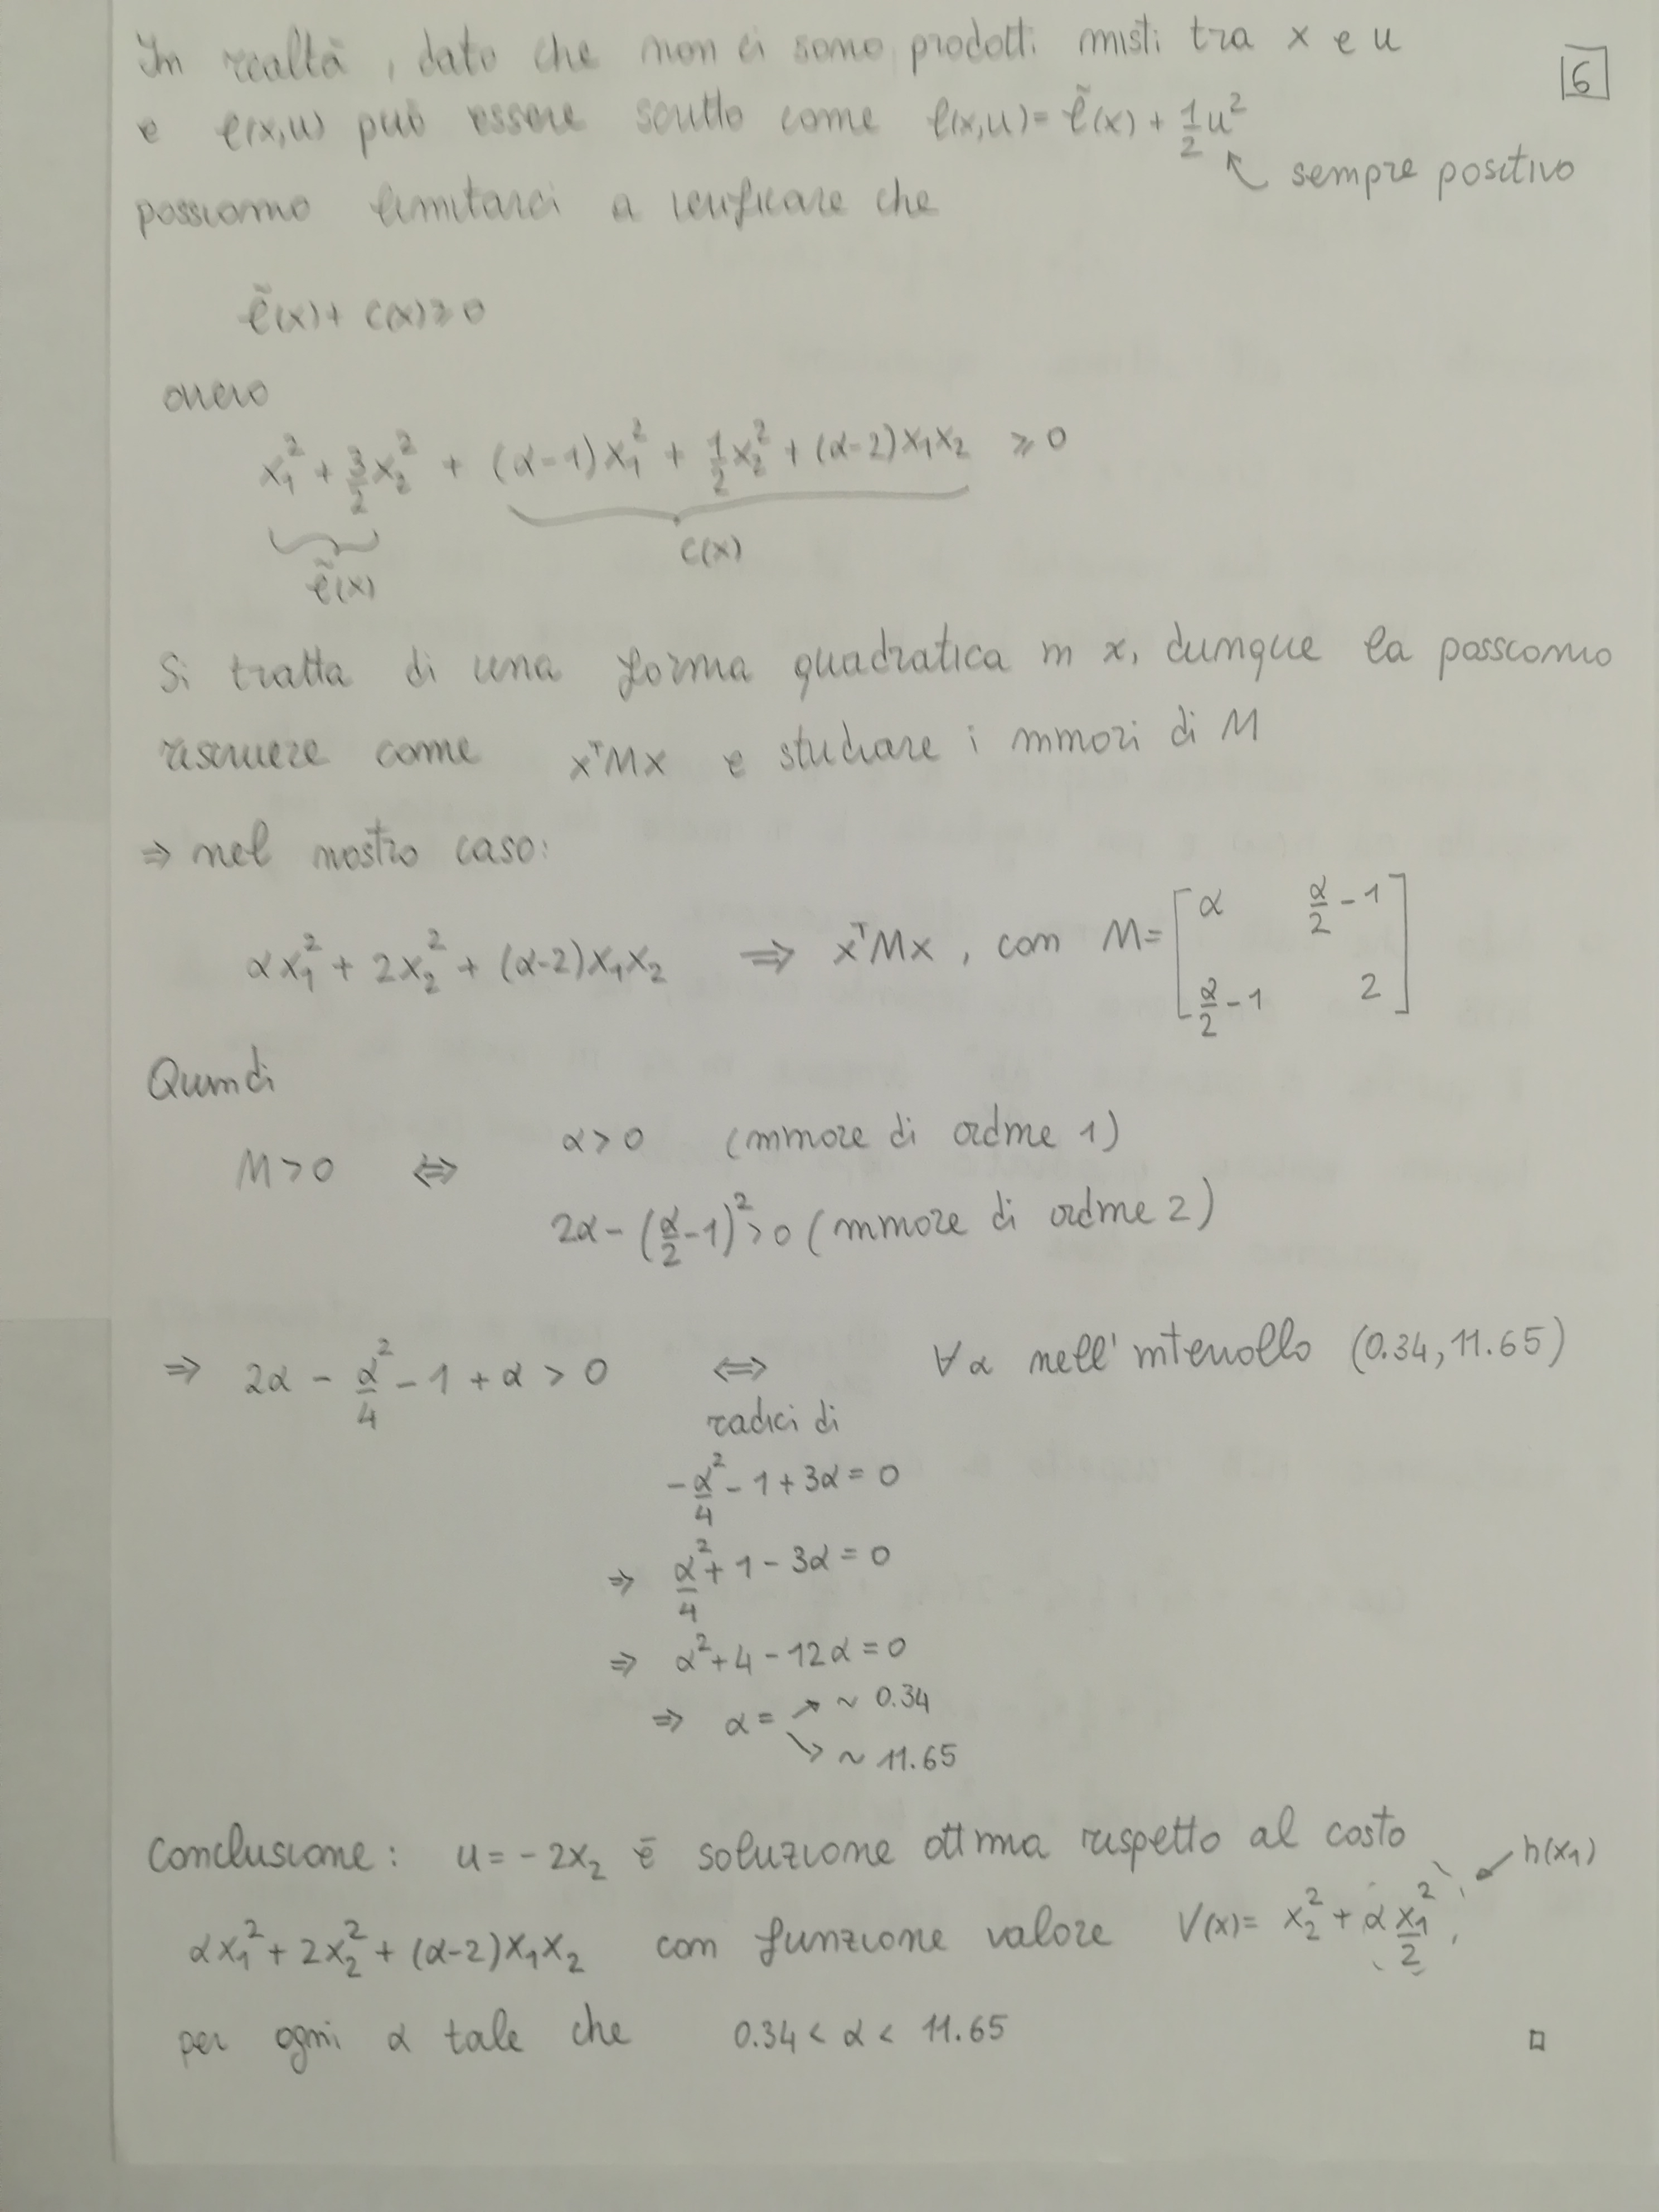 In realtà, dato che non ci sono prodotti misti tra x e u
6
e ℓ(x,u) può essere scritto come ℓ(x,u) = ℓ̃(x) + 1/2 u²
↖ sempre positivo
possiamo limitarci a verificare che
ℓ̃(x) + c(x) ≥ 0
ovvero
x₁² + 3/2 x₂² + (α-1)x₁² + 1/2 x₂² + (α-2)x₁x₂ ≥ 0
ℓ̃(x) c(x)
Si tratta di una forma quadratica in x, dunque la possiamo
riscrivere come xᵀMx e studiare i minori di M
⇒ nel nostro caso:
αx₁² + 2x₂² + (α-2)x₁x₂ ⇒ xᵀMx, con M = [α α/2 - 1
α/2 - 1 2]
Quindi
α > 0 (minore di ordine 1)
M > 0 ⇔
2α - (α/2 - 1)² > 0 (minore di ordine 2)
⇒ 2α - α²/4 - 1 + α > 0 ⇔ ∀α nell'intervallo (0.34, 11.65)
radici di
-α²/4 - 1 + 3α = 0
⇒ α²/4 + 1 - 3α = 0
⇒ α² + 4 - 12α = 0
⇒ α = ↗ ~ 0.34
↘ ~ 11.65
Conclusione: u = -2x₂ è soluzione ottima rispetto al costo
h(x₁)
αx₁² + 2x₂² + (α-2)x₁x₂ con funzione valore V(x) = x₂² + α x₁²/2,
per ogni α tale che 0.34 < α < 11.65 □